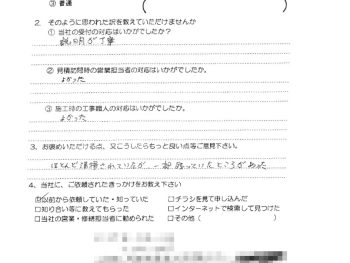 ③ 普通
2. そのように思われた訳を教えていただけませんか
① 当社の受付の対応はいかがでしたか?
説明が丁寧
② 見積訪問時の営業担当者の対応はいかがでしたか。
よかった
③ 施工時の工事職人の対応はいかがでしたか。
よかった
3. お褒めいただける点、又こうしたらもっと良い点等ご意見下さい。
ほとんど清掃されていたが、一部残っていたところがあった
4. 当社に、ご依頼されたきっかけをお教え下さい
☑以前から依頼していた・知っていた □チラシを見て申し込んだ
□知り合い等に教えてもらった □インターネットで検索して見つけた
□当社の営業・修繕担当者に勧められた □その他(